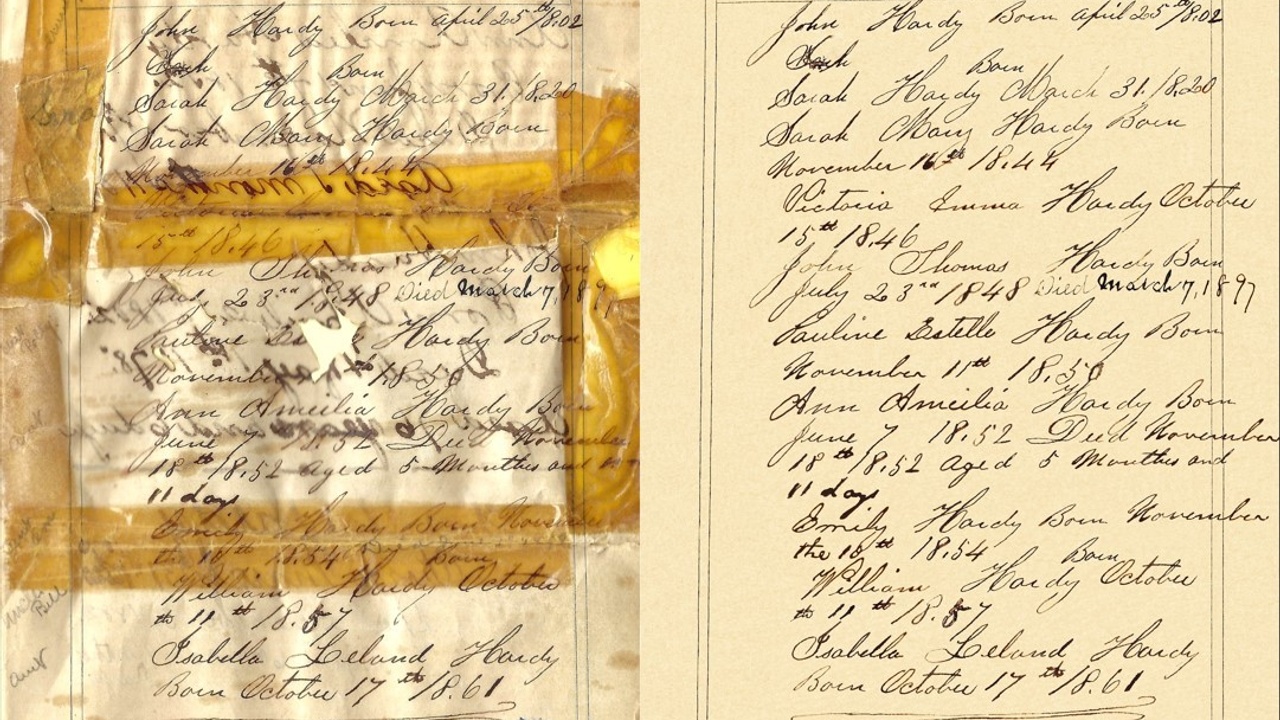 John Hardy Born April 25th 18.02
Born
Sarah Hardy March 31. 18.20
Sarah Mary Hardy Born
November 16th 18.44
15th 18.46
John Thomas Hardy Born
July 23rd 18.48 Died March 7, 1897
Pauline Hardy Born
November 18.50
Ann Ameilia Hardy Born
June 7 18.52 Died November
18th 18.52 aged 5 Monthes and
11 days
Emily Hardy Born November
the 10th 18.54 Born
William Hardy October
th 11th 18.57
Isabella Leland Hardy
Born October 17th 18.61
Aunt
Aunt
John Hardy Born April 25th 18.02
Born
Sarah Hardy March 31. 18.20
Sarah Mary Hardy Born
November 16th 18.44
Victoria Emma Hardy October
15th 18.46
John Thomas Hardy Born
July 23rd 1848 Died March 7, 1897
Pauline Estelle Hardy Born
November 11th 18.50
Ann Ameilia Hardy Born
June 7 18.52 Died November
18th 18.52 aged 5 Monthes and
11 days
Emily Hardy Born November
the 10th 18.54 Born
William Hardy October
th 11th 18.57
Isabella Leland Hardy
Born October 17th 18.61